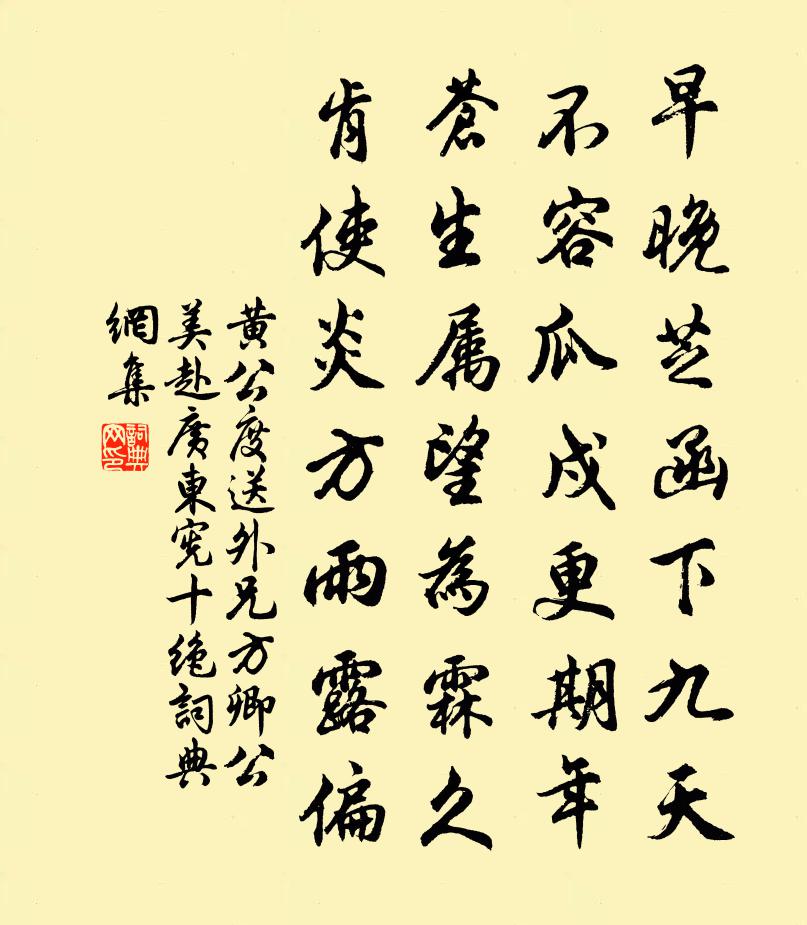 早晚芝函下九天
不容瓜戍更期年
蒼生属望為霖久
肯使炎方雨露偏
黄公度送外兄方卿公
美赴廣東憲十绝詞典
網集
詞典
网印